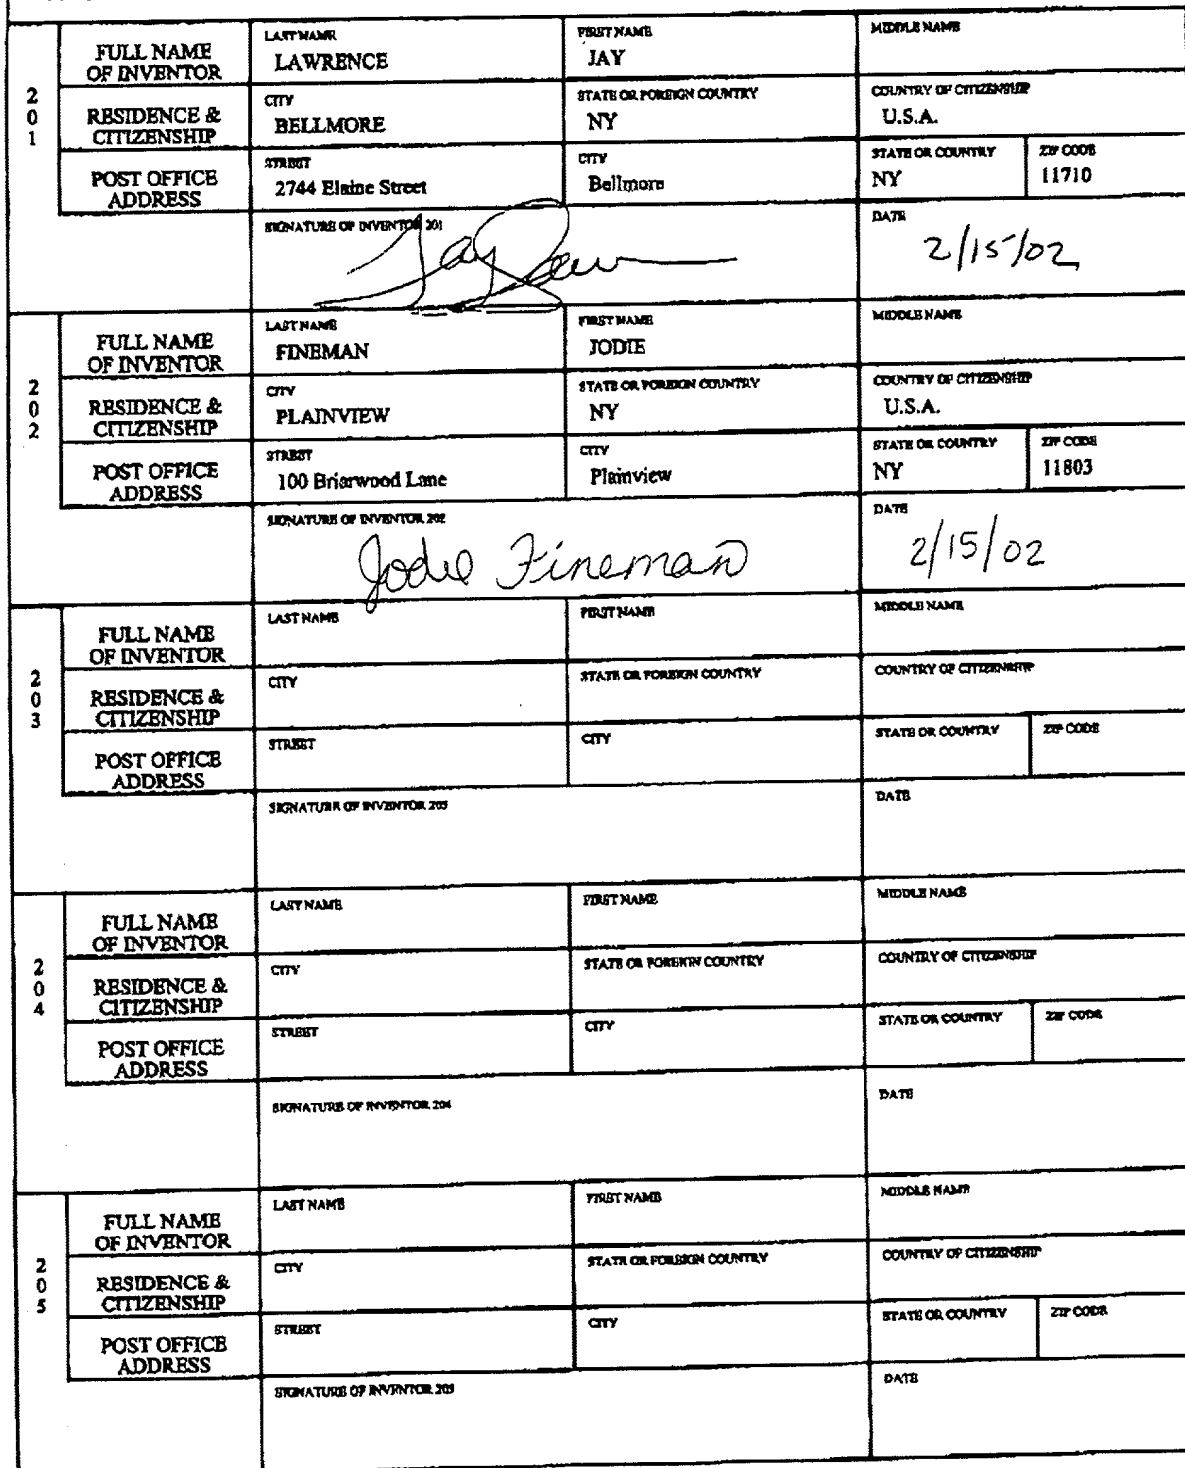 201
FULL NAME OF INVENTOR
LAST NAME
LAWRENCE
FIRST NAME
JAY
MIDDLE NAME
RESIDENCE & CITIZENSHIP
CITY
BELLMORE
STATE OR FOREIGN COUNTRY
NY
COUNTRY OF CITIZENSHIP
U.S.A.
POST OFFICE ADDRESS
STREET
2744 Elaine Street
CITY
Bellmore
STATE OR COUNTRY
NY
ZIP CODE
11710
SIGNATURE OF INVENTOR 201
Jay
DATE
2/15/02
202
FULL NAME OF INVENTOR
LAST NAME
FINEMAN
FIRST NAME
JODIE
MIDDLE NAME
RESIDENCE & CITIZENSHIP
CITY
PLAINVIEW
STATE OR FOREIGN COUNTRY
NY
COUNTRY OF CITIZENSHIP
U.S.A.
POST OFFICE ADDRESS
STREET
100 Briarwood Lane
CITY
Plainview
STATE OR COUNTRY
NY
ZIP CODE
11803
SIGNATURE OF INVENTOR 202
Jodie Fineman
DATE
2/15/02
203
FULL NAME OF INVENTOR
LAST NAME
FIRST NAME
MIDDLE NAME
RESIDENCE & CITIZENSHIP
CITY
STATE OR FOREIGN COUNTRY
COUNTRY OF CITIZENSHIP
POST OFFICE ADDRESS
STREET
CITY
STATE OR COUNTRY
ZIP CODE
SIGNATURE OF INVENTOR 203
DATE
204
FULL NAME OF INVENTOR
LAST NAME
FIRST NAME
MIDDLE NAME
RESIDENCE & CITIZENSHIP
CITY
STATE OR FOREIGN COUNTRY
COUNTRY OF CITIZENSHIP
POST OFFICE ADDRESS
STREET
CITY
STATE OR COUNTRY
ZIP CODE
SIGNATURE OF INVENTOR 204
DATE
205
FULL NAME OF INVENTOR
LAST NAME
FIRST NAME
MIDDLE NAME
RESIDENCE & CITIZENSHIP
CITY
STATE OR FOREIGN COUNTRY
COUNTRY OF CITIZENSHIP
POST OFFICE ADDRESS
STREET
CITY
STATE OR COUNTRY
ZIP CODE
SIGNATURE OF INVENTOR 205
DATE